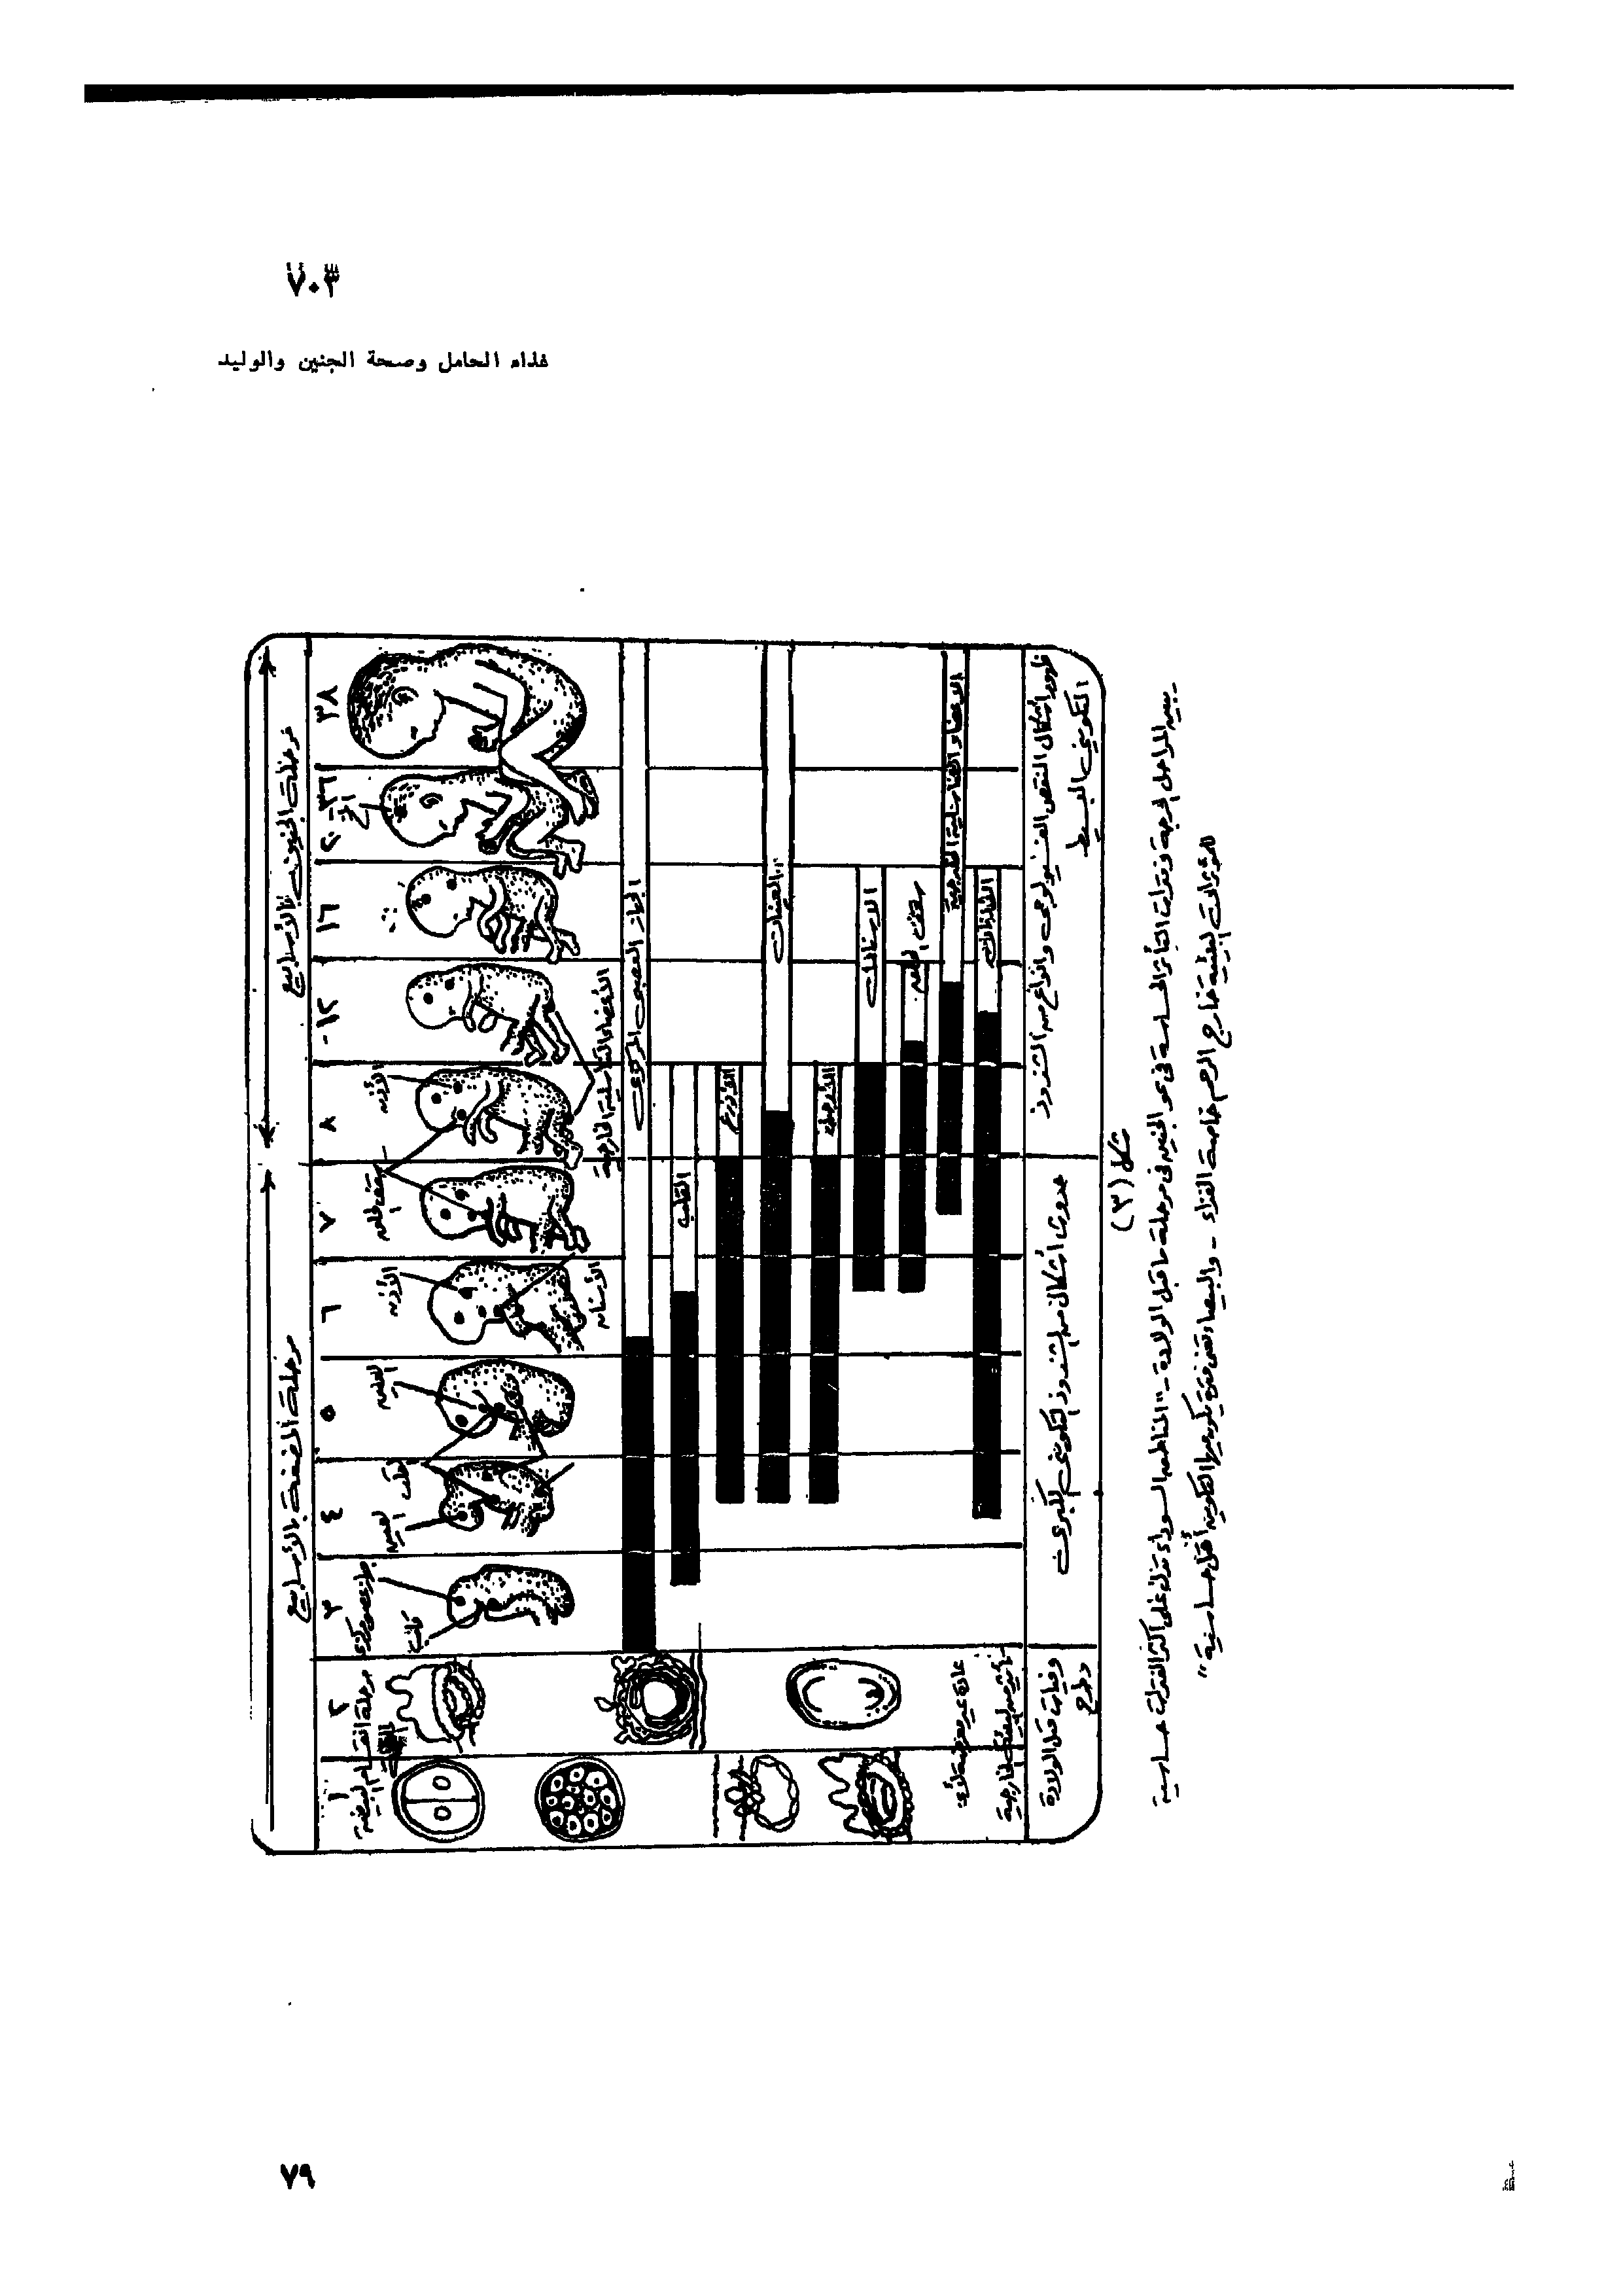 ٧٠٣
غذاء الحامل وصحة الجنين والوليد
مرحلة المضغة بالأسابيع
مرحلة الجنين بالأسابيع
١ ٢ ٣ ٤ ٥ ٦ ٧ ٨ ١٢ ١٦ ٢٠-٣٦ ٣٨
مرحلة انقسام البيضة
جهاز عصبي مركزي
قلب
العين
القلب
الأذن
الأذن
المخ
الأسنان
الأعضاء التناسلية الخارجية
الجهاز العصبي المركزي
القلب
الأذرع
العينان
الأرجل
الاسنان
سقف الحلق
الاعضاء التناسلية الخارجية
الأذنان
وفيات قبل الولادة
حدوث أشكال من الشذوذ التكويني الكبرى
ظهور أشكال النقص الفسيولوجي وأنواع من الشذوذ
التكويني البسيط
شكل (٣)
يبين المراحل الحرجة وفترات التأثر الحساسة في نمو الجنين في مرحلة ما قبل الولادة - "المناطق السوداء تدل على أكثر الفترات حساسية
للمؤثرات البيئية خارج الرحم خاصة الغذاء - والبيضاء تعني فترة يكون فيها التكوين أقل حساسية"
٧٩